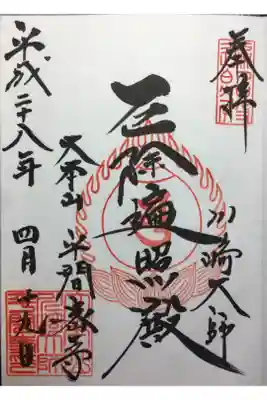 奉拝
川崎大師
厄除遍照殿
大本山 平間教寺
平成二十八年 四月 十九日